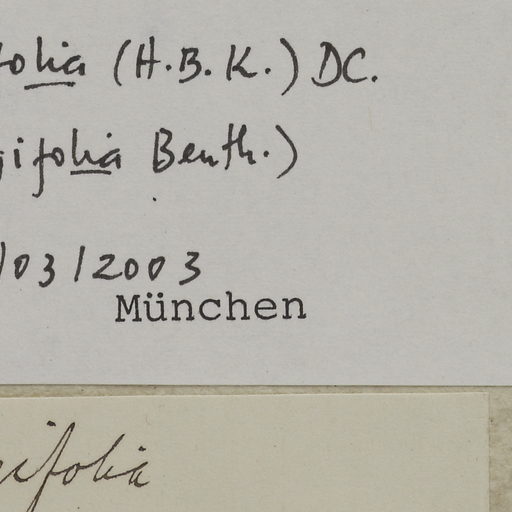 folia (H.B.K.) DC.
gifolia Benth.)
/03/2003
München
gifolia